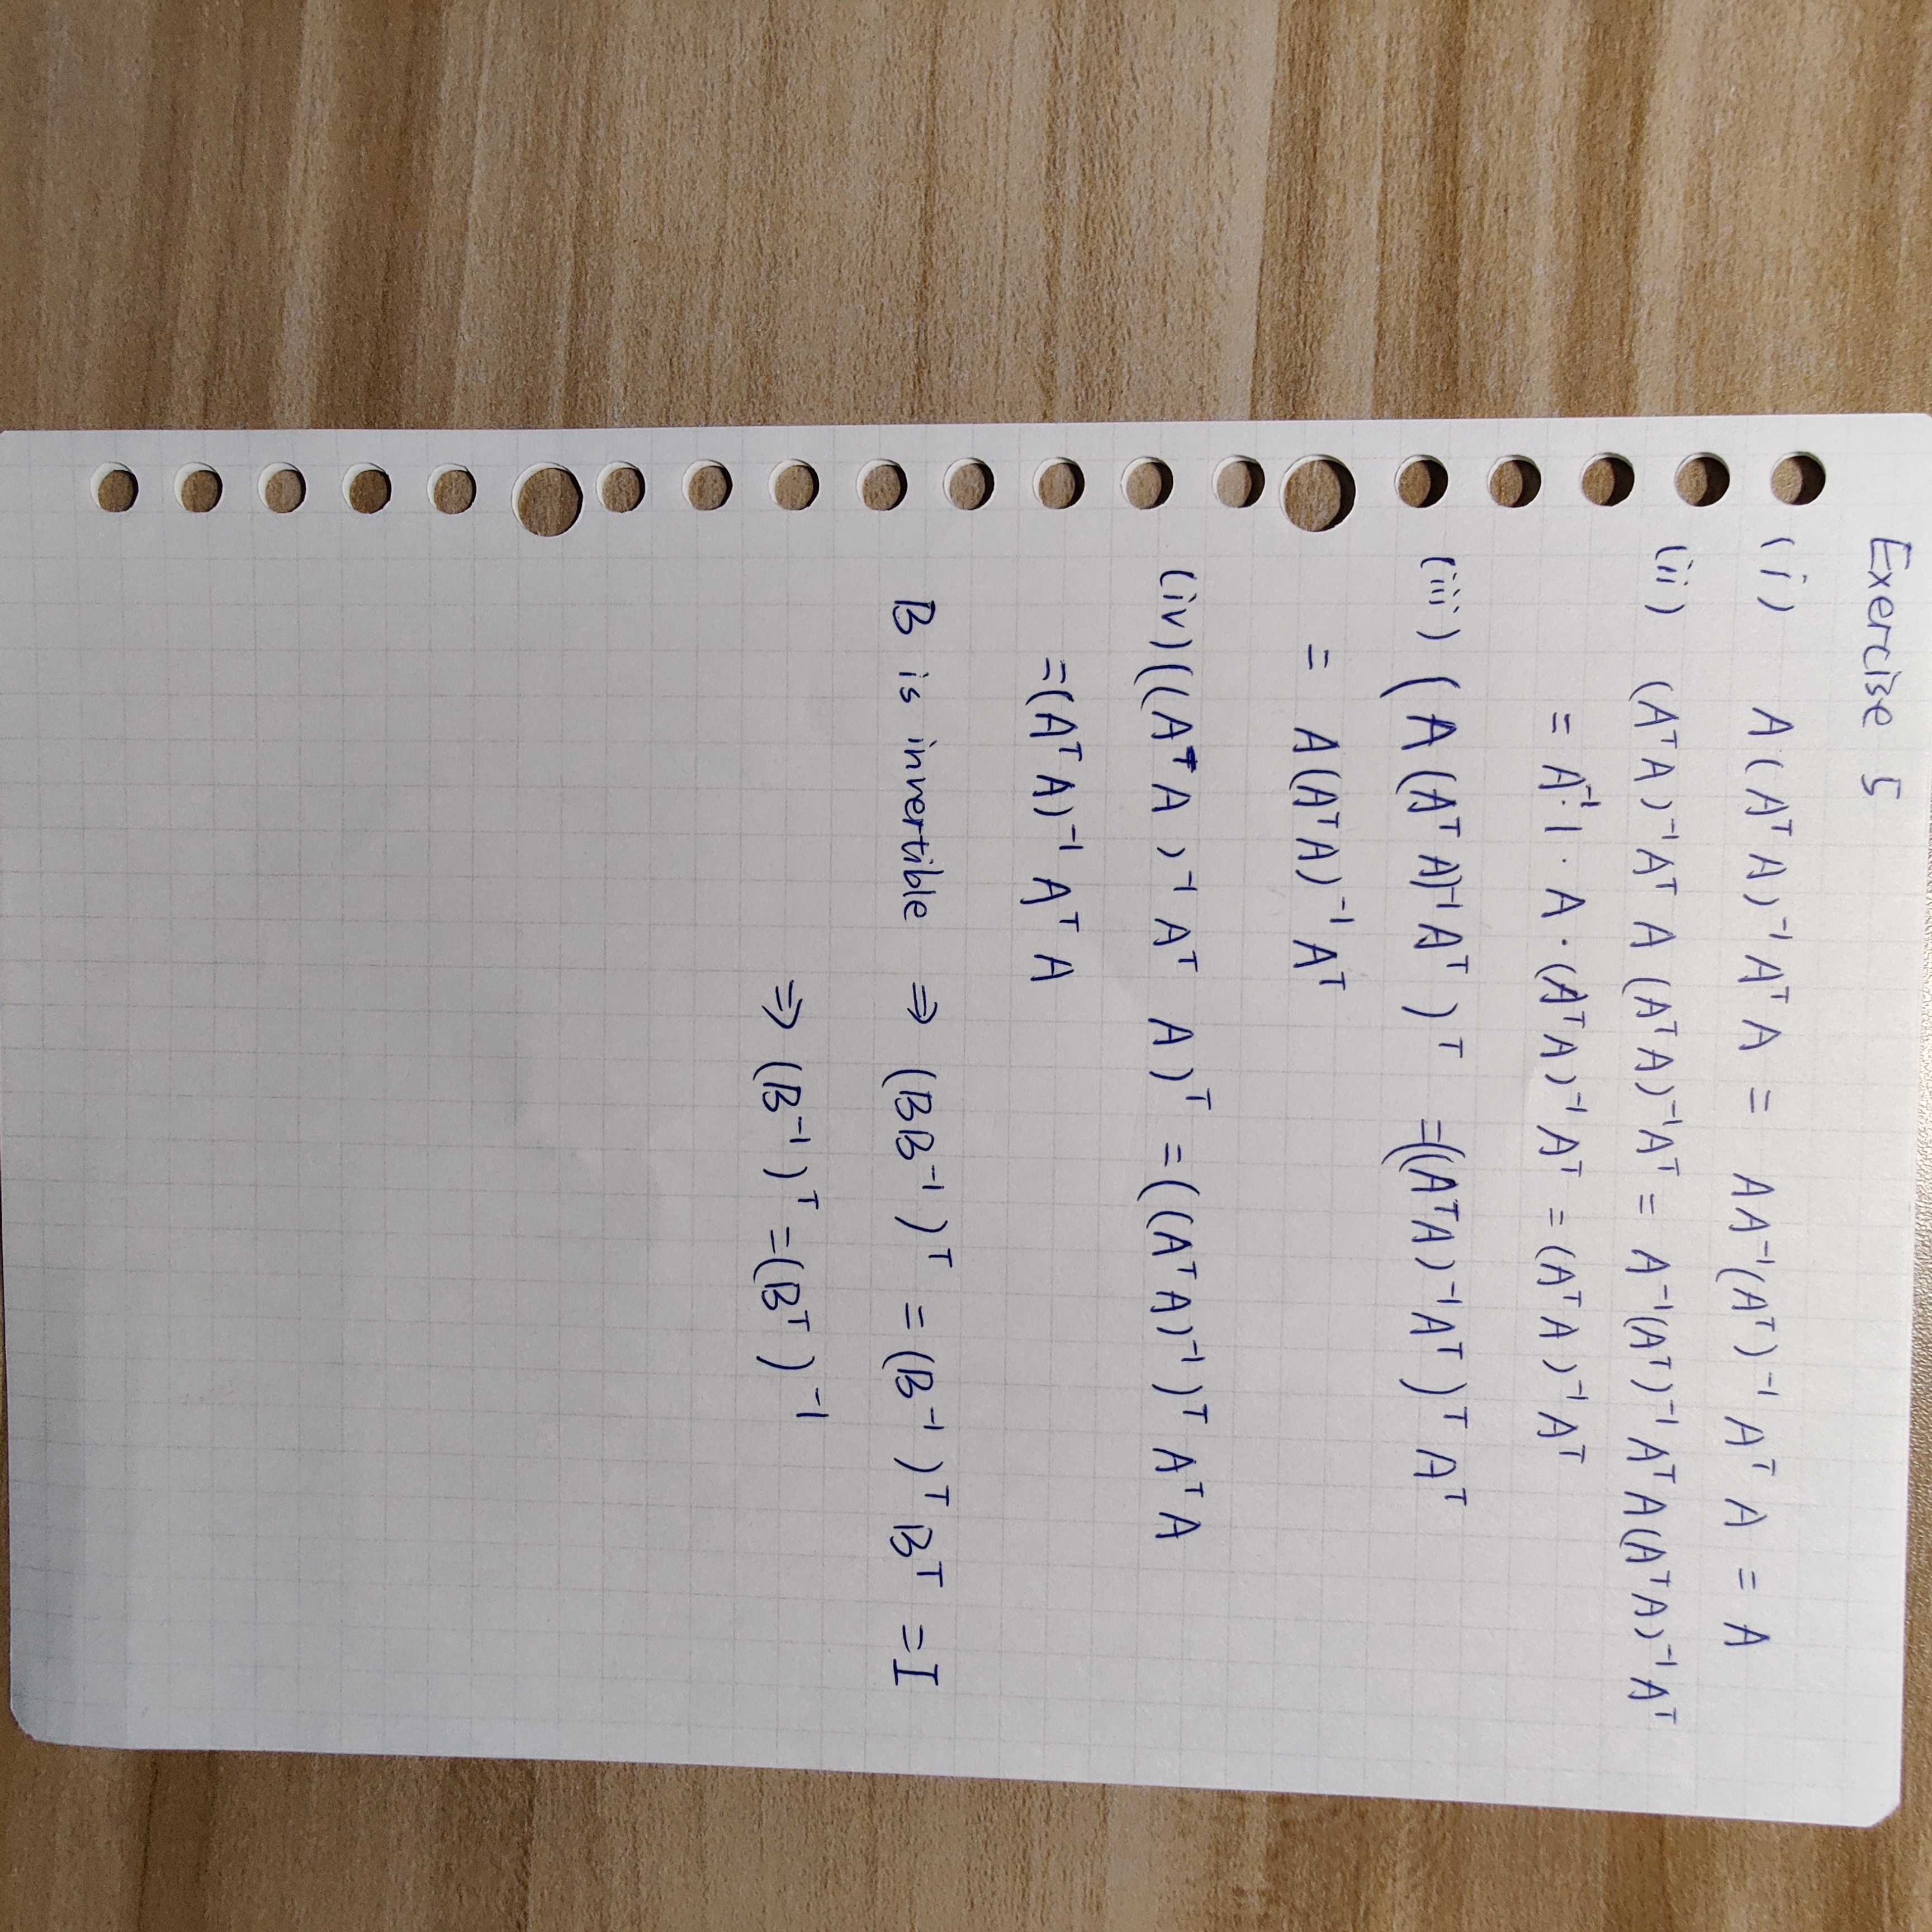 Exercise 5
(i) A(AᵀA)⁻¹AᵀA = AA⁻¹(Aᵀ)⁻¹AᵀA = A
(ii) (AᵀA)⁻¹AᵀA(AᵀA)⁻¹Aᵀ = A⁻¹(Aᵀ)⁻¹AᵀA(AᵀA)⁻¹Aᵀ
= A⁻¹·1·A·(AᵀA)⁻¹Aᵀ = (AᵀA)⁻¹Aᵀ
(iii) (A(AᵀA)⁻¹Aᵀ)ᵀ = ((AᵀA)⁻¹Aᵀ)ᵀAᵀ
= A(AᵀA)⁻¹Aᵀ
(iv) ((AᵀA)⁻¹AᵀA)ᵀ = ((AᵀA)⁻¹)ᵀAᵀA
= (AᵀA)⁻¹AᵀA
B is invertible ⇒ (BB⁻¹)ᵀ = (B⁻¹)ᵀBᵀ = I
⇒ (B⁻¹)ᵀ = (Bᵀ)⁻¹